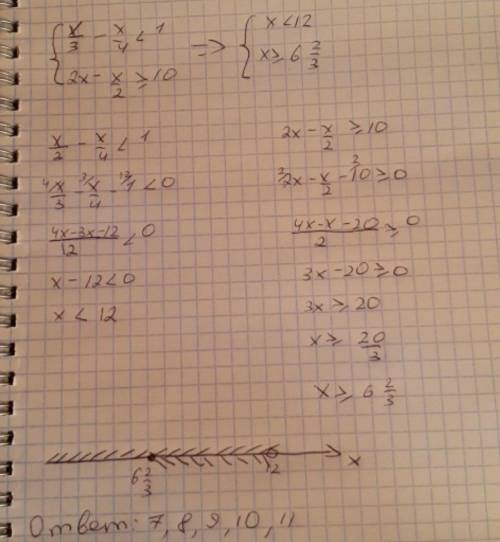 { x/3 - x/4 < 1 => { x < 12
{ 2x - x/2 ≥ 10 { x ≥ 6 2/3
x/3 - x/4 < 1
⁴x/3 - ³x/4 - ¹²1 < 0
(4x-3x-12)/12 < 0
x - 12 < 0
x < 12
2x - x/2 ≥ 10
²2x - x/2 - ²10 ≥ 0
(4x-x-20)/2 ≥ 0
3x - 20 ≥ 0
3x ≥ 20
x ≥ 20/3
x ≥ 6 2/3
6 2/3 12 x
Ответ: 7, 8, 9, 10, 11